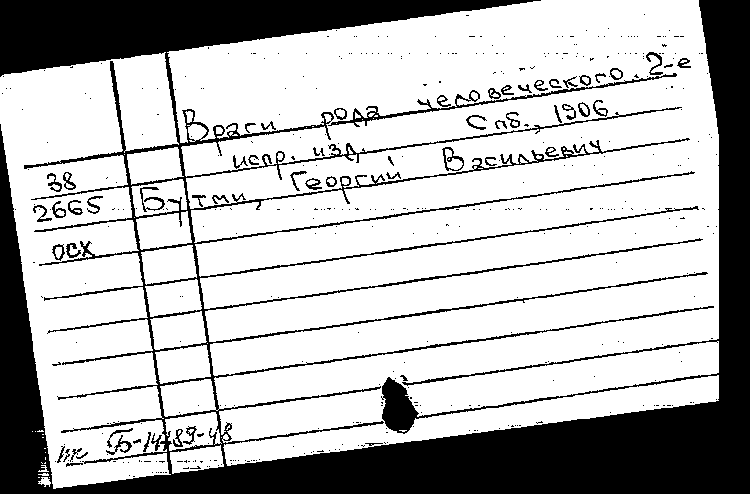 Враги рода человеческого. 2-е
испр. изд. Спб., 1906.
38
2665 Бутми, Георгий Васильевич
осх
тк Б-14789-48